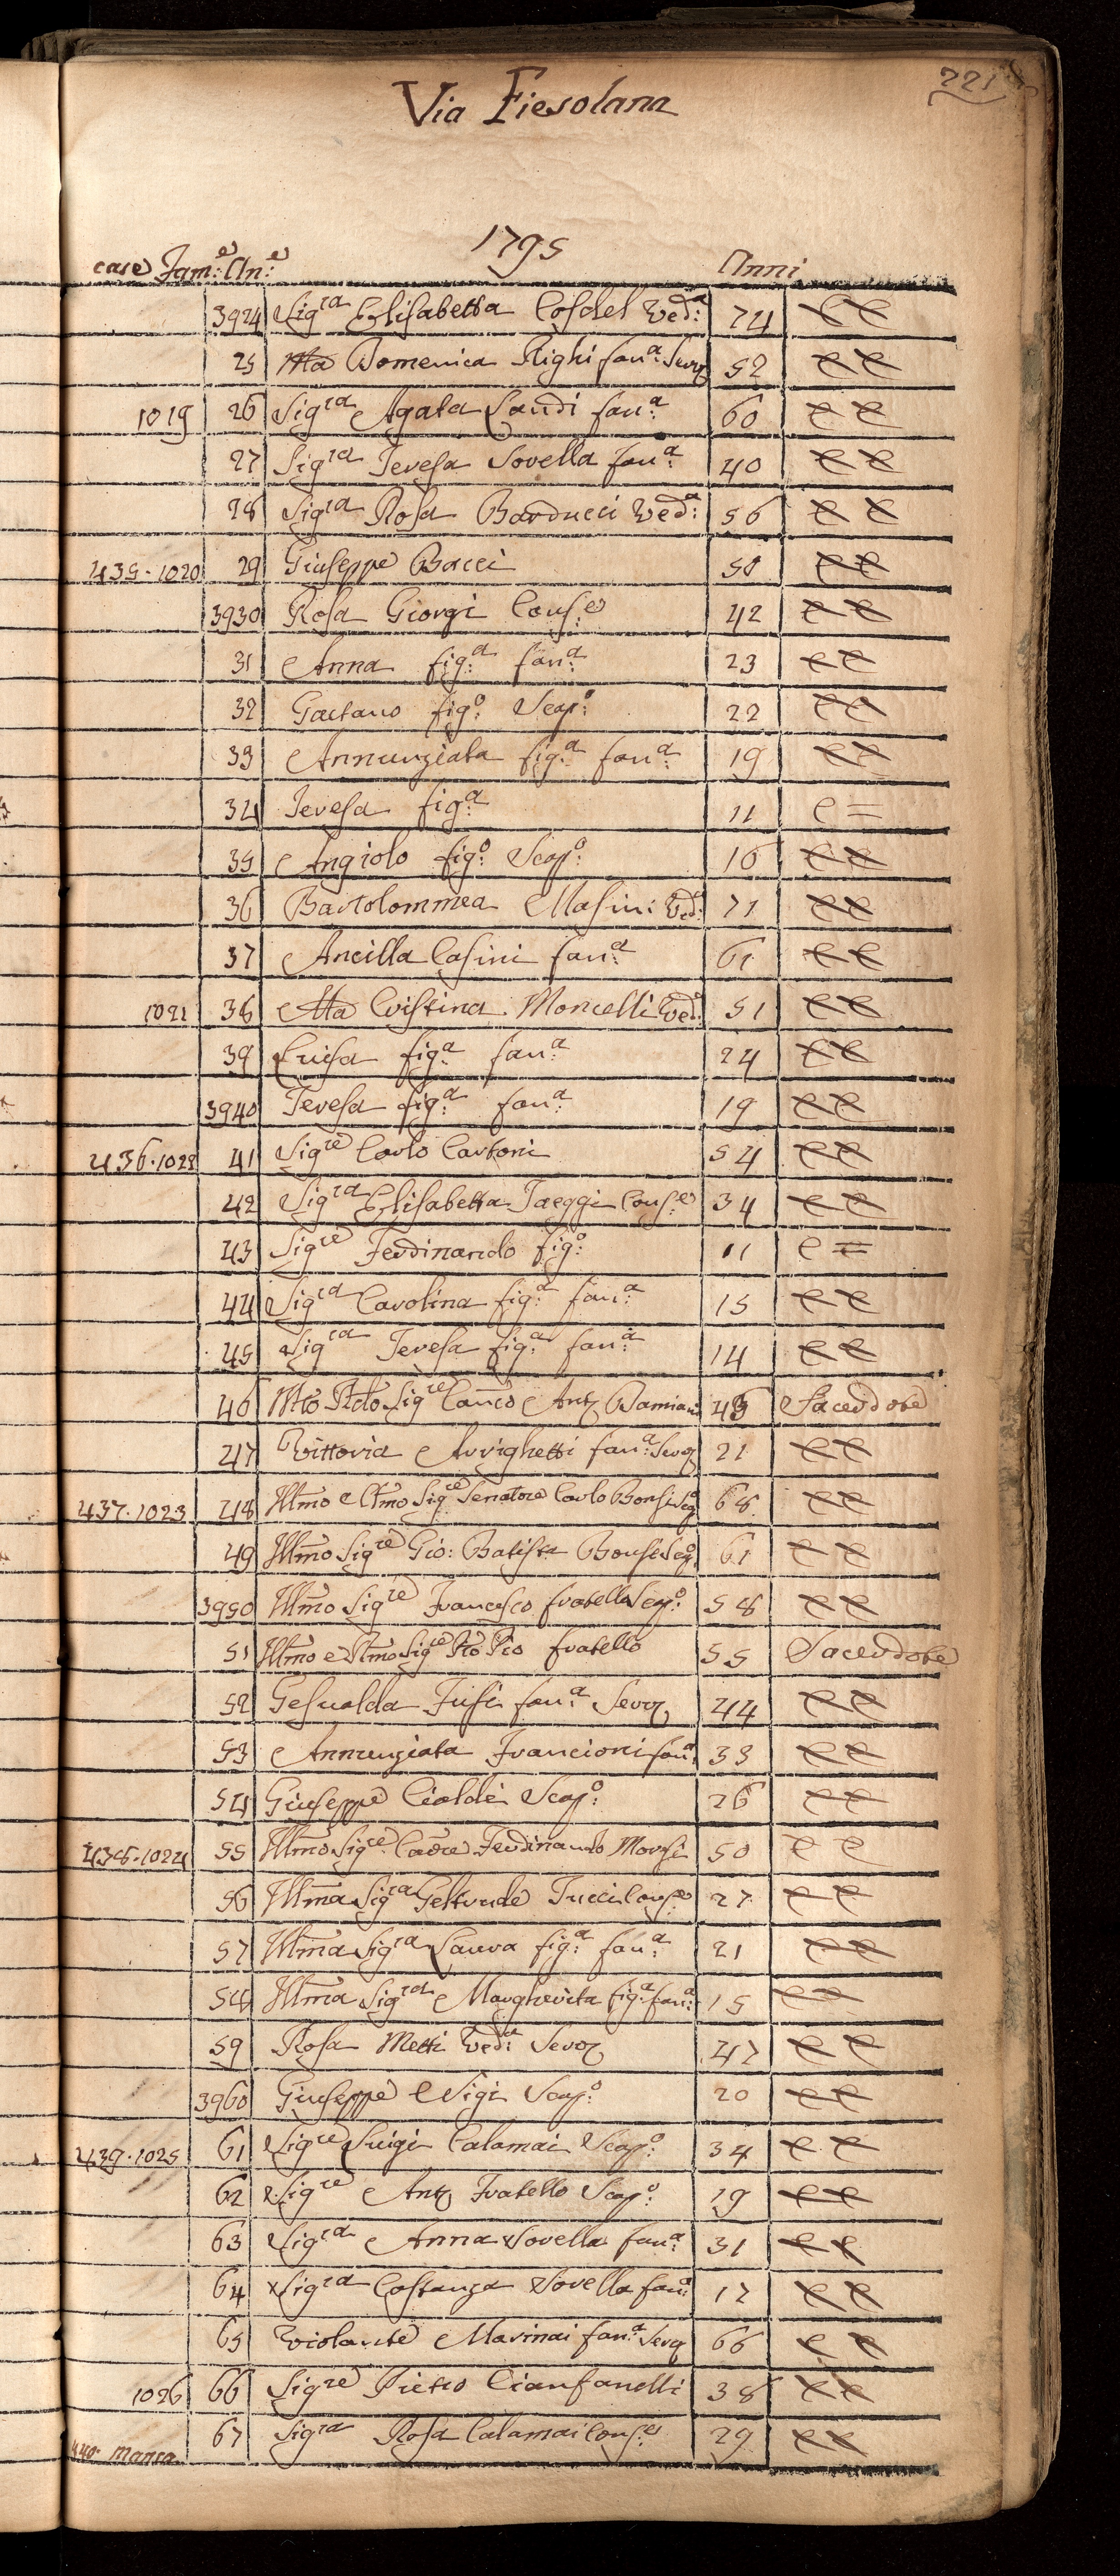 221
Via Fiesolana
1795
case Fam:e An:e Anni
3924 Sigra Elisabetta Coschel Ved:a 74 e e
25 Mta Domenica Righi fan:a Serv 52 e e
1019 26 Sigra Agata Landi fan:a 60 e e
27 Sigra Teresa Sorella fan:a 40 e e
28 Sigra Rosa Barducci Ved:a 56 e e
435 · 1020 29 Giuseppe Bacci 50 e e
3930 Rosa Giorgi Cons:e 42 e e
31 Anna fig:a fan:a 23 e e
32 Gaetano fig:o Scap:o 22 e e
33 Annunziata fig:a fan:a 19 e e
34 Teresa fig:a 11 e =
35 Angiolo fig:o Scap:o 16 e e
36 Bartolommea Masini Ved:a 71 e e
37 Ancilla Casini fan:a 61 e e
1021 38 Mta Cristina Moncelli Ved:a 51 e e
39 Luisa fig:a fan:a 24 e e
3940 Teresa fig:a fan:a 19 e e
436 · 1022 41 Sigre Carlo Cartoni 54 e e
42 Sigra Elisabetta Jaeggi Cons:e 34 e e
43 Sigre Ferdinando fig:o 11 e =
44 Sigra Carolina fig:a fan:a 15 e e
45 Sigra Teresa fig:a fan:a 14 e e
46 Mto Rdo Sigre Canco Ant Damiani Sacerdote
47 Vittoria Arrighetti fan:a Serv 21 e e
437 · 1023 48 Illmo e Clmo Sigre Senatore Carlo Bonsi Scap:o 68 e e
49 Illmo Sigre Gio: Batista Bonsi Scap:o 61 e e
3950 Illmo Sigre Francesco fratello Scap:o 58 e e
51 Illmo e Rmo Sigre Pio fratello 55 Sacerdote
52 Gesualda Fusi fan:a Serv 44 e e
53 Annunziata Francioni fan:a 33 e e
54 Giuseppe Cioldi Scap:o 26 e e
438 · 1024 55 Illmo Sigre Cavre Ferdinando Morsi 50 e e
56 Illma Sigra Geltrude Tucci Cons:e 27 e e
57 Illma Sigra Laura fig:a fan:a 21 e e
58 Illma Sigra Margherita fig:a fan:a 15 e e
59 Rosa Metti Ved:a Serv 47 e e
3960 Giuseppe Nigi Scap:o 20 e e
439 · 1025 61 Sigre Luigi Calamai Scap:o 34 e e
62 Sigre Ant Fratello Scap:o 19 e e
63 Sigra Anna Sorella fan:a 31 e e
64 Sigra Costanza Sorella fan:a 17 e e
65 Violante Marinai fan:a Serv 66 e e
1026 66 Sigre Pietro Cianfanelli 38 e e
67 Sigra Rosa Calamai Cons:e 29 e e
440 manca